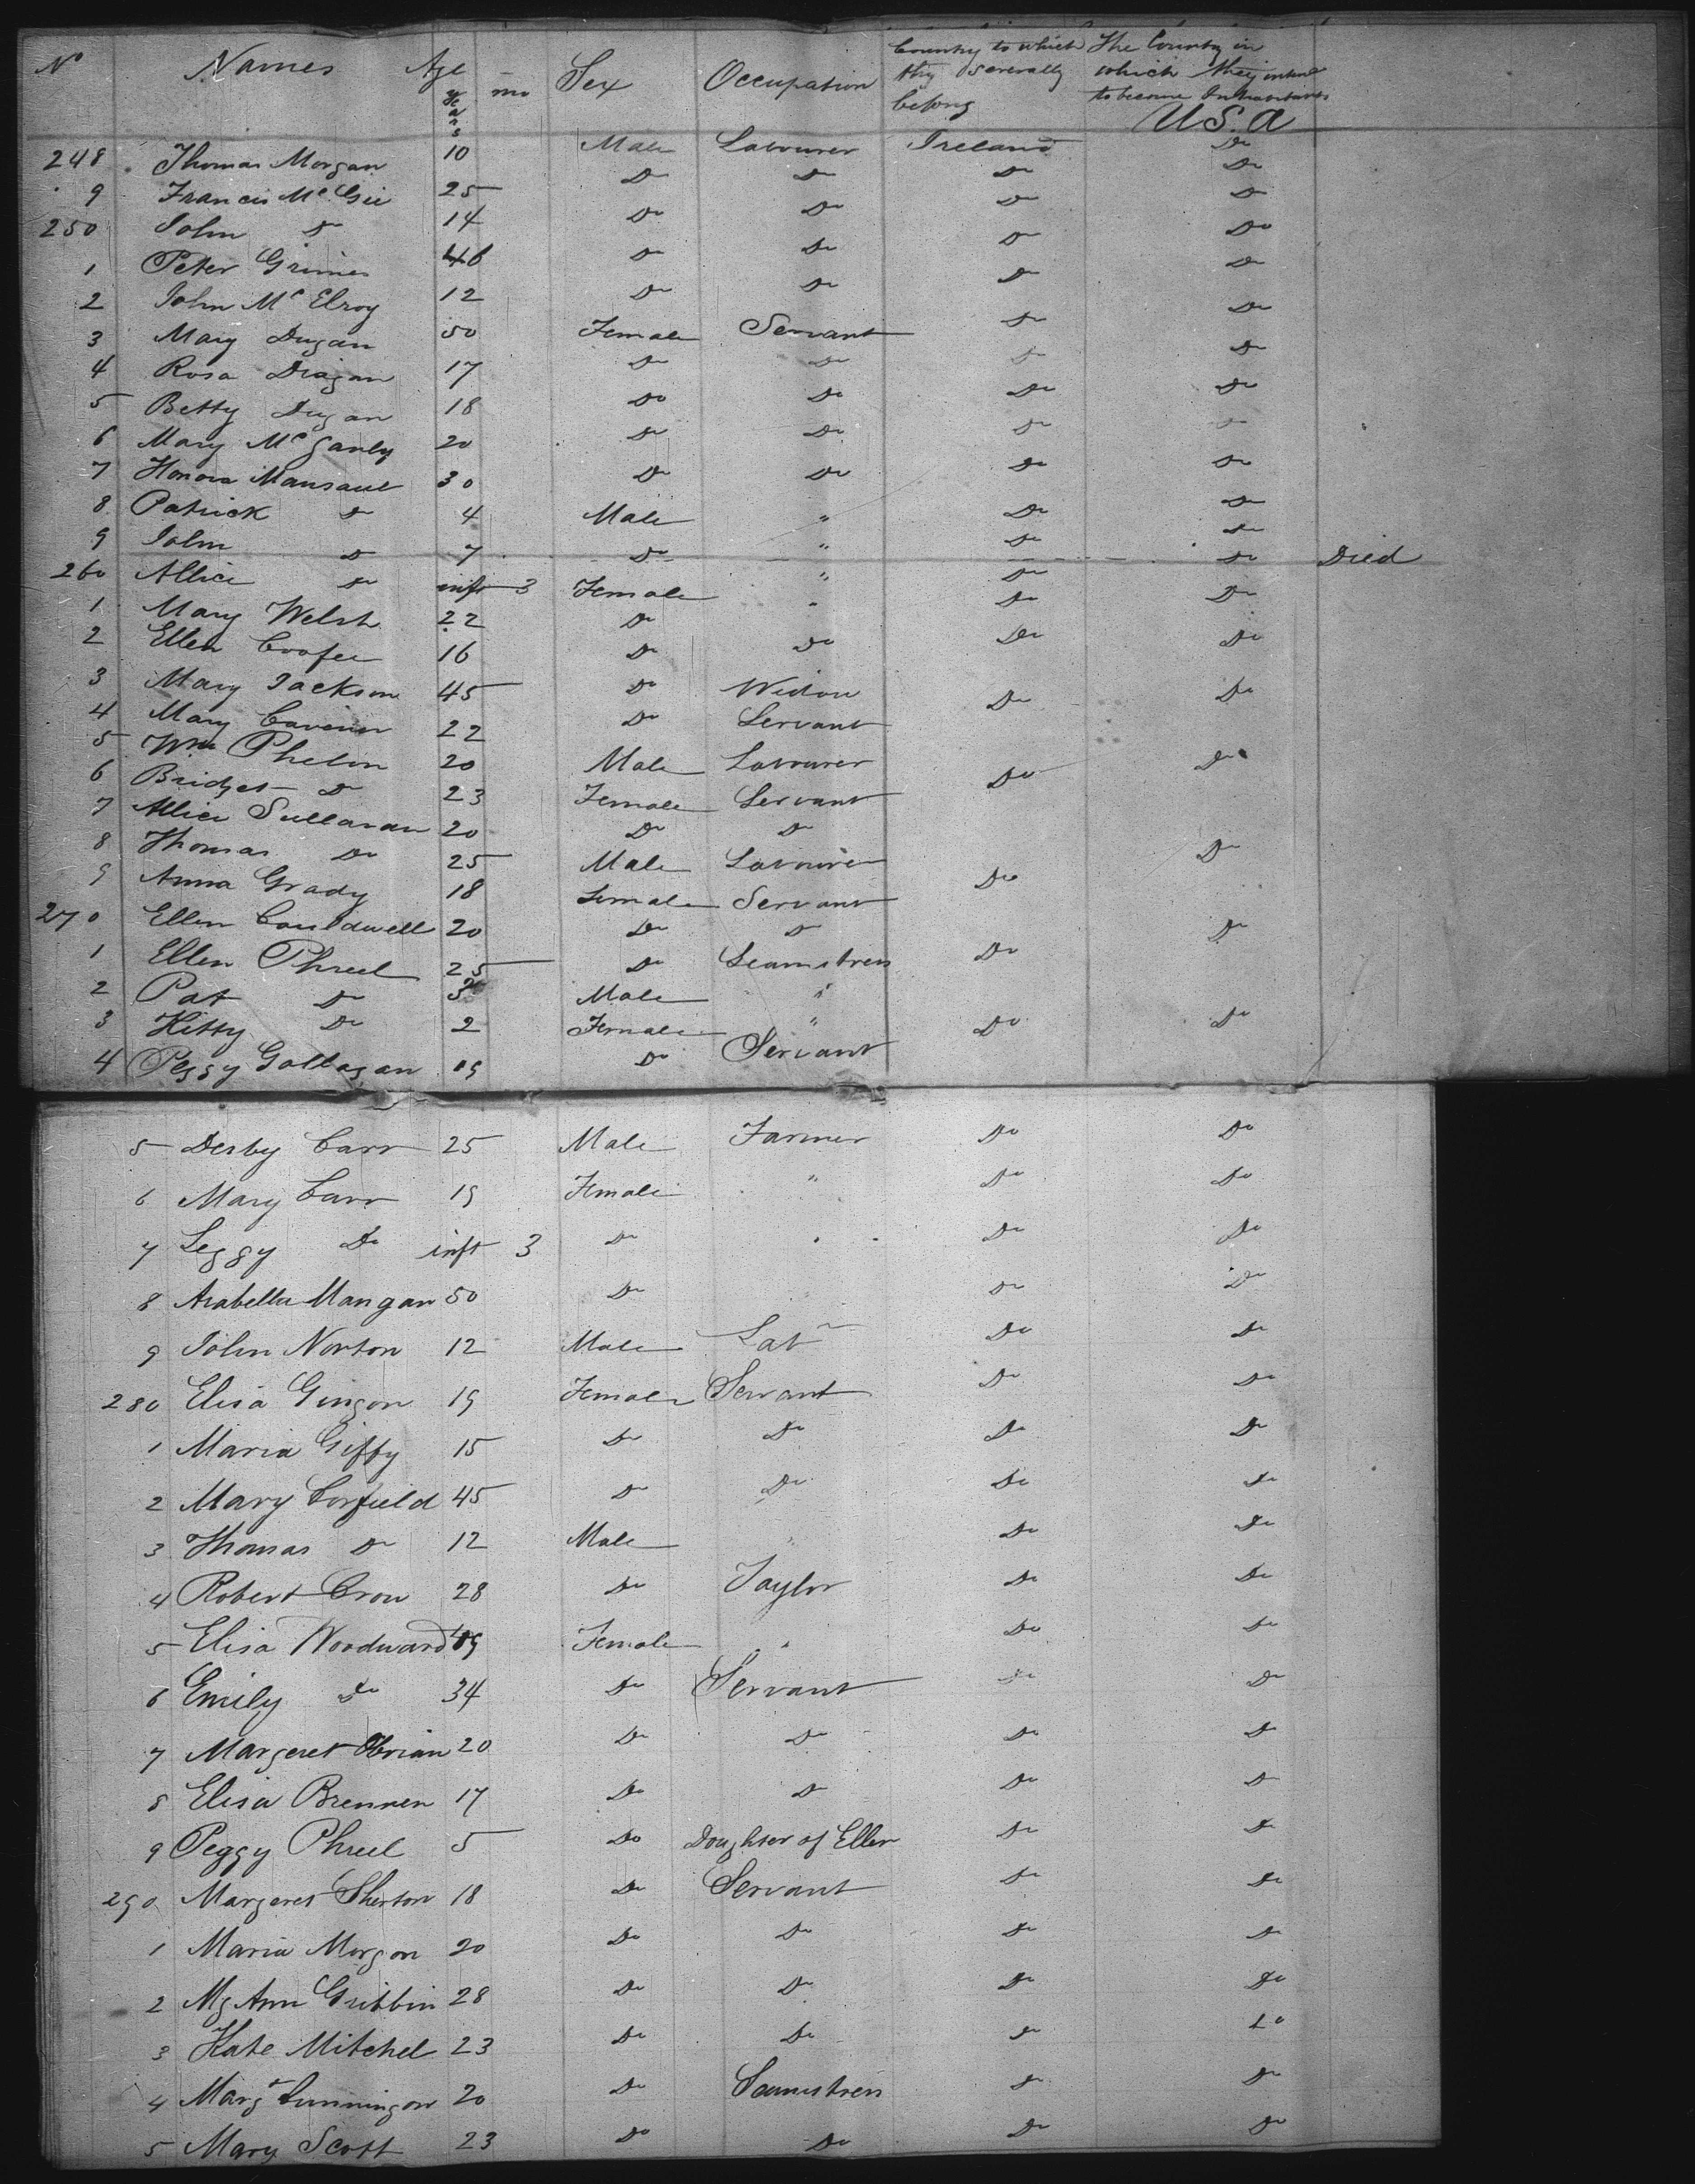 No Names Age Years mo Sex Occupation Country to which they severally belong The Country in which they intend to become Inhabitants
U S. A
248 Thomas Morgan 10 Male Labourer Ireland Do
9 Francis Mc Gee 25 Do Do Do Do
250 John Do 14 Do Do Do Do
1 Peter Grimes 46 Do Do Do Do
2 John Mc Elroy 12 Do Do Do Do
3 Mary Dugan 50 Female Servant Do Do
4 Rosa Dugan 17 Do Do Do Do
5 Betty Dugan 18 Do Do Do Do
6 Mary Mc Ganly 20 Do Do Do Do
7 Honora Mansaul 30 Do Do Do Do
8 Patrick Do 4 Male " Do Do
9 John Do 7 Do " Do Do
260 Allice Do inft 3 Female " Do Do Died
1 Mary Welsh 22 Do " Do Do
2 Ellen Coofee 16 Do Do Do Do
3 Mary Jackson 45 Do Widow Do Do
4 Mary 22 Do Servant
5 Wm Phelon 20 Male Labourer Do Do
6 Bridget Do 23 Female Servant
7 Allice Sullavan 20 Do Do
8 Thomas Do 25 Male Labourer Do
9 Anna Grady 18 Female Servant Do
270 Ellen Couldwell 20 Do Do Do
1 Ellen Phreel 25 Do Seamstress Do
2 Pat Do 3 Male "
3 Kitty Do 2 Female " Do Do
4 Peggy Gallagan 19 Do Servant
5 Derby Carr 25 Male Farmer Do Do
6 Mary Carr 19 Female " Do Do
7 Peggy Do inft 3 Do Do Do
8 Arabella Mangan 50 Do Do Do
9 John Norton 12 Male Labr Do Do
280 Elisa Gingon 19 Female Servant Do Do
1 Maria Giffy 15 Do Do Do Do
2 Mary Corfield 45 Do Do Do Do
3 Thomas Do 12 Male " Do Do
4 Robert Crow 28 Do Taylor Do Do
5 Elisa Woodward Female " Do Do
6 Emily Do 34 Do Servant Do Do
7 Margeret Obrian 20 Do Do Do Do
8 Elisa Brennen 17 Do Do Do Do
9 Peggy Phreel 5 Do Doughter of Ellen Do Do
290 Margeret Sherton 18 Do Servant Do Do
1 Maria Morgon 20 Do Do Do Do
2 My Ann Gribbin 28 Do Do Do Do
3 Kate Mitchel 23 Do Do Do Do
4 Margt Cunningon 20 Do Seamstress Do Do
5 Mary Scott 23 Do Do Do Do